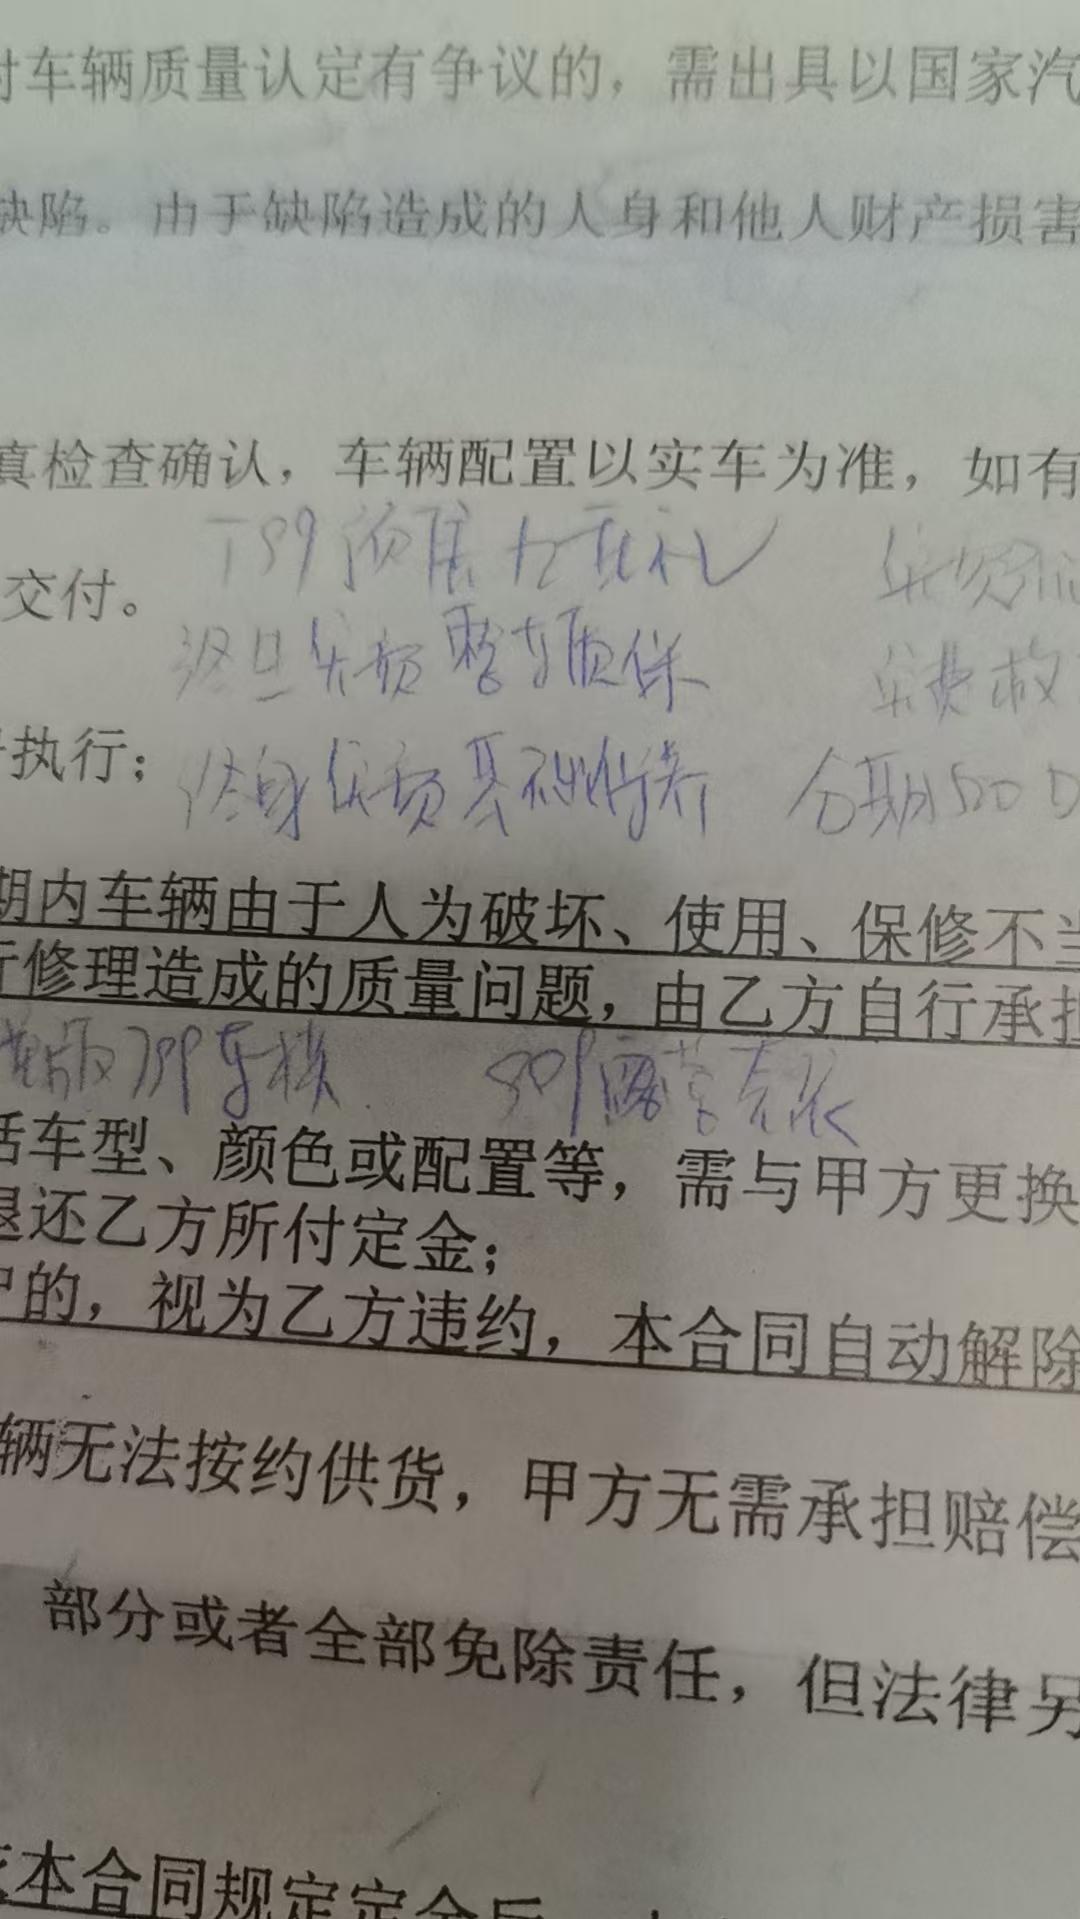 对车辆质量认定有争议的，需出具以国家汽
缺陷。由于缺陷造成的人身和他人财产损害
真检查确认，车辆配置以实车为准，如有
T99预售七重礼
交付。
终身免费整车质保
免费救
执行；
终身免费基础保养
分期500
期内车辆由于人为破坏、使用、保修不当
行修理造成的质量问题，由乙方自行承担
版799车模
809露营套装
括车型、颜色或配置等，需与甲方更换
退还乙方所付定金；
户的，视为乙方违约，本合同自动解除
辆无法按约供货，甲方无需承担赔偿
部分或者全部免除责任，但法律另
本合同规定定金后